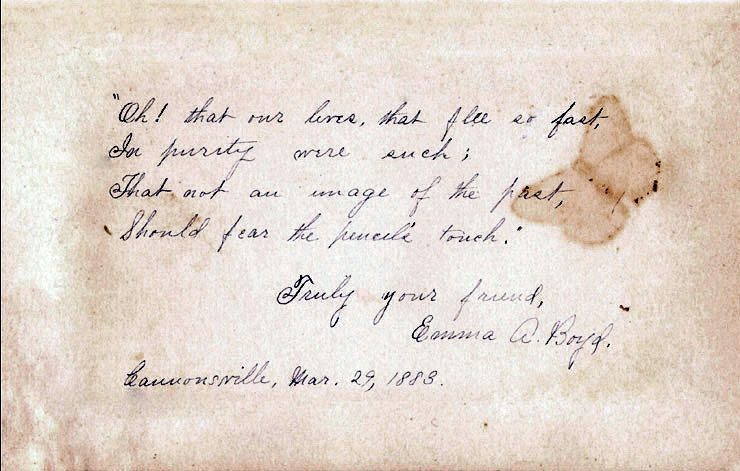 "Oh! that our lives, that flee so fast,
In purity were such;
That not an image of the past,
Should fear the pencil's touch."
Truly your friend,
Emma A. Boyd.
Cannonsville, Mar. 29, 1883.